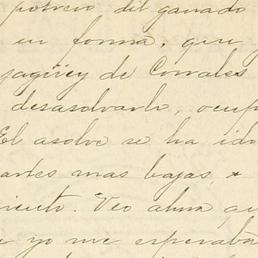 potrero del ganado
en forma, que
jagüey de Corrales
desasolvarlo, ocup
El asolve se ha ido
artes mas bajas, &
miento. Veo ahora qu
e yo me esperaba